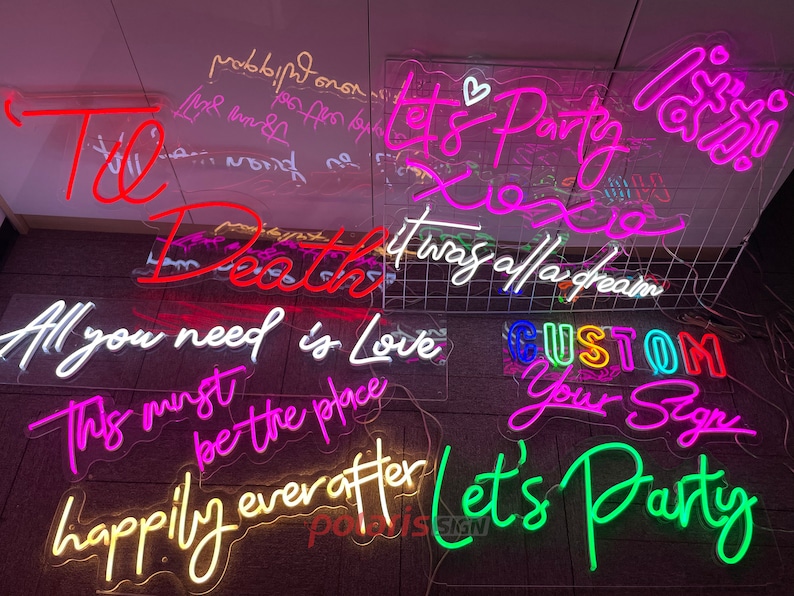 'Til
Death
Let's Party
xoxo
it was all a dream
All you need is Love
CUSTOM
Your Sign
This must
be the place
happily ever after
Let's Party
polaris SIGN